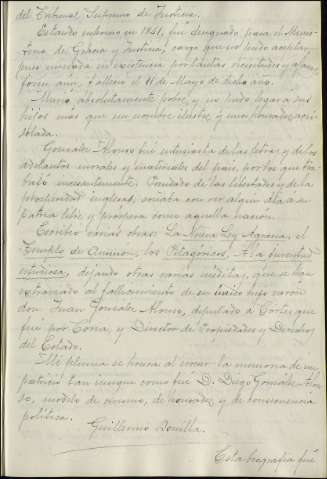 del Tribunal Supremo de Justicia.
Estando enfermo en 1841, fue designado para el Minis-
terio de Gracia y Justicia, cargo que no pudo aceptar,
pues minada su existencia por tantas vicisitudes y
falleció el 11 de Mayo de dicho año.
Murió absolutamente pobre, y no pudo legar a sus
hijos mas que un nombre ilustre y una honradez acri-
solada.
Gonzalez Alonso fué entusiasta de las letras y de los
adelantos morales y materiales del país, por los que tra-
bajó incesantemente. de las libertades y de la
prosperidad inglesas, soñaba con ver algun dia a su
patria libre y prospera como aquella nacion.
Escribió varias obras: La Nueva Ley Agraria, el
los Pitagóricos, A la Juventud
estudiosa, dejando otras varias inéditas, que se han
extraviado al fallecimiento de su unico hijo varón
don Juan Gonzalez Alonso, diputado a Cortes que
fué por Coria, y Director de Propiedades y Derechos
del Estado.
Mi pluma se honra al evocar la memoria de un
patricio tan insigne como fué D. Diego Gonzalez Alon-
so, modelo de civismo, de honradez, y de consecuencia
política.
Guillermo Bonilla.
Esta biografía fué